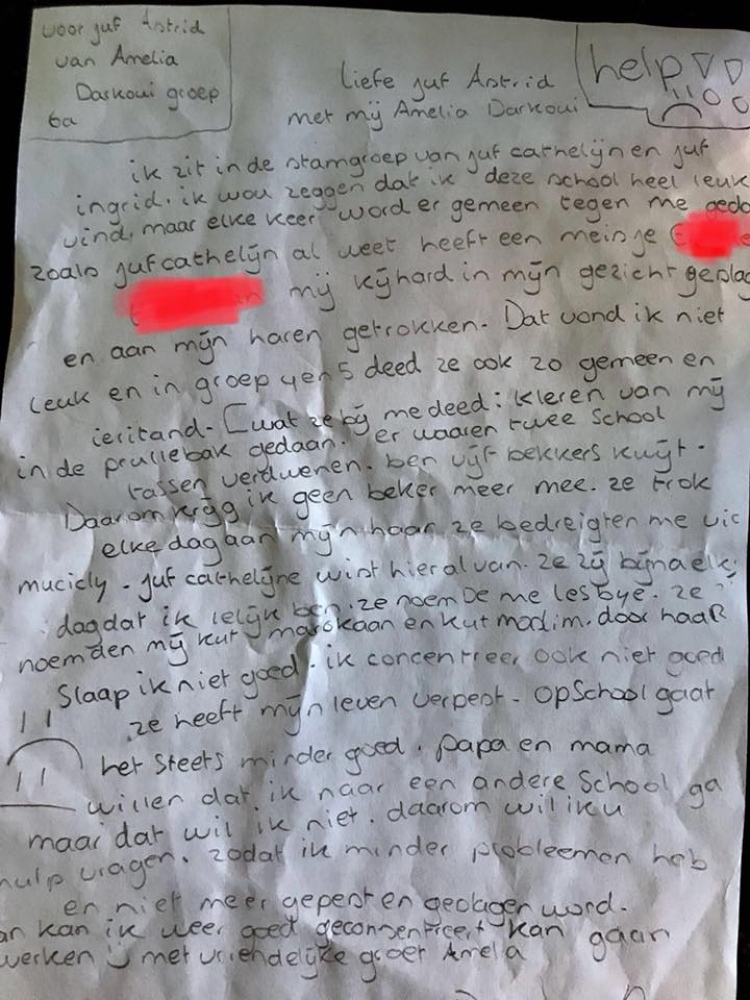 voor juf Astrid
van Amelia
Darkoui groep
6a
help
liefe juf Astrid
met mij Amelia Darkoui
ik zit in de stamgroep van juf cathelijn en juf
ingrid. ik wou zeggen dat ik deze school heel leuk
vind. maar elke keer word er gemeen tegen me geda
zoals juf cathelijn al weet heeft een meisje
mij kijhard in mijn gezicht geslag
en aan mijn haren getrokken. Dat vond ik niet
leuk en in groep 4 en 5 deed ze ook zo gemeen en
[wat ze bij me deed: kleren van mij
in de prullebak gedaan. er waaren twee School
tassen verdwenen. ben vijf bekkers kwijt.
Daarom krijg ik geen beker meer mee. ze trok
elke dag aan mijn haar ze bedreigten me
juf cathelijne wist hier al van. ze zij bijna elke
dag dat ik lelijk ben. ze noemDe me lesbye. ze
noemden mij kut marokaan en kut moslim. door haar
Slaap ik niet goed. ik concentreer ook niet goed
ze heeft mijn leven verpest. opSchool gaat
het Steets minder goed. papa en mama
willen dat ik naar een andere School ga
maar dat wil ik niet. daarom wil ik u
hulp vragen. zodat ik minder probleemen heb
en niet meer gepest en geslagen word.
an kan ik weer goed geconsentreert kan gaan
werken met vriendelijke groet Amelia